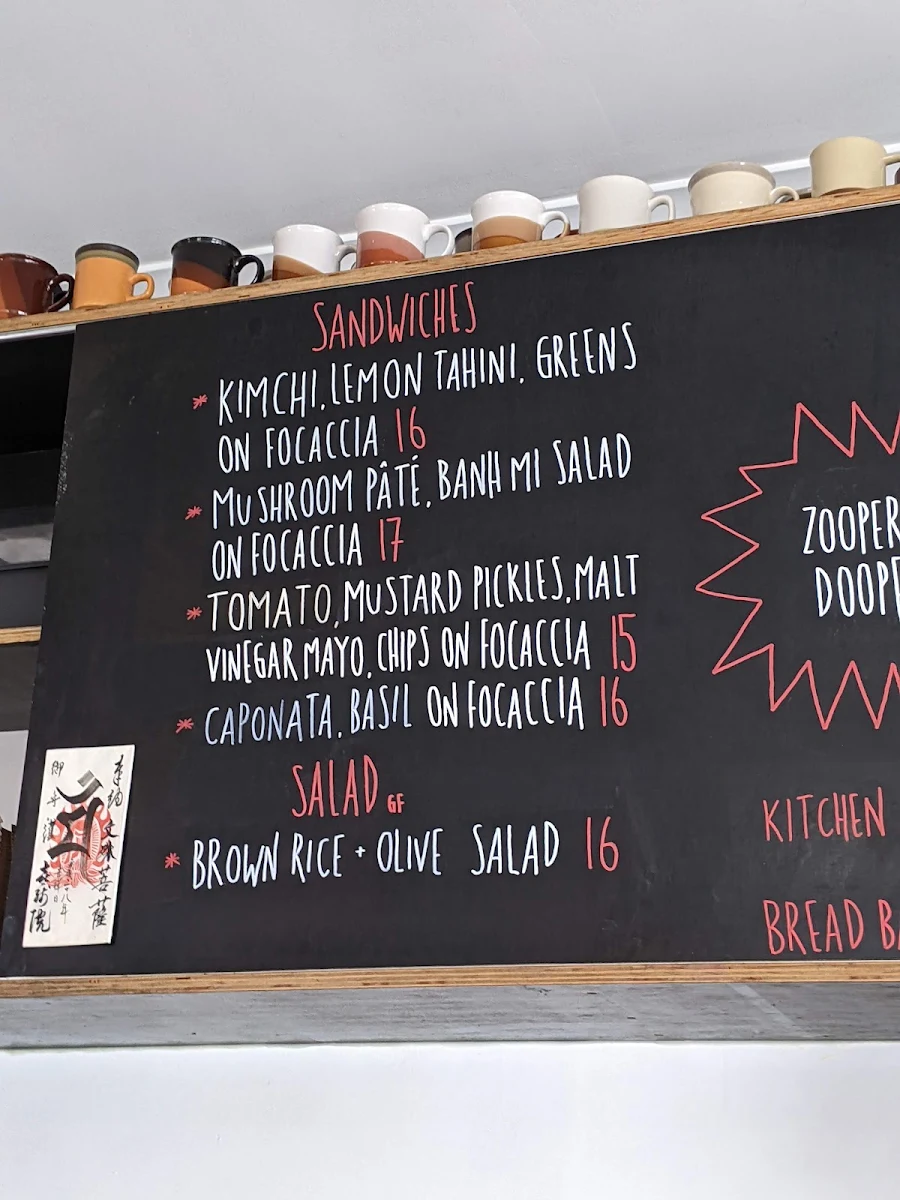 SANDWICHES
* KIMCHI, LEMON TAHINI, GREENS
ON FOCACCIA 16
* MUSHROOM PÂTÉ, BANH MI SALAD
ON FOCACCIA 17
* TOMATO, MUSTARD PICKLES, MALT
VINEGAR MAYO, CHIPS ON FOCACCIA 15
* CAPONATA, BASIL ON FOCACCIA 16
SALAD GF
* BROWN RICE + OLIVE SALAD 16
ZOOPER
DOOPE
KITCHEN
BREAD BA
奉納
文殊菩薩